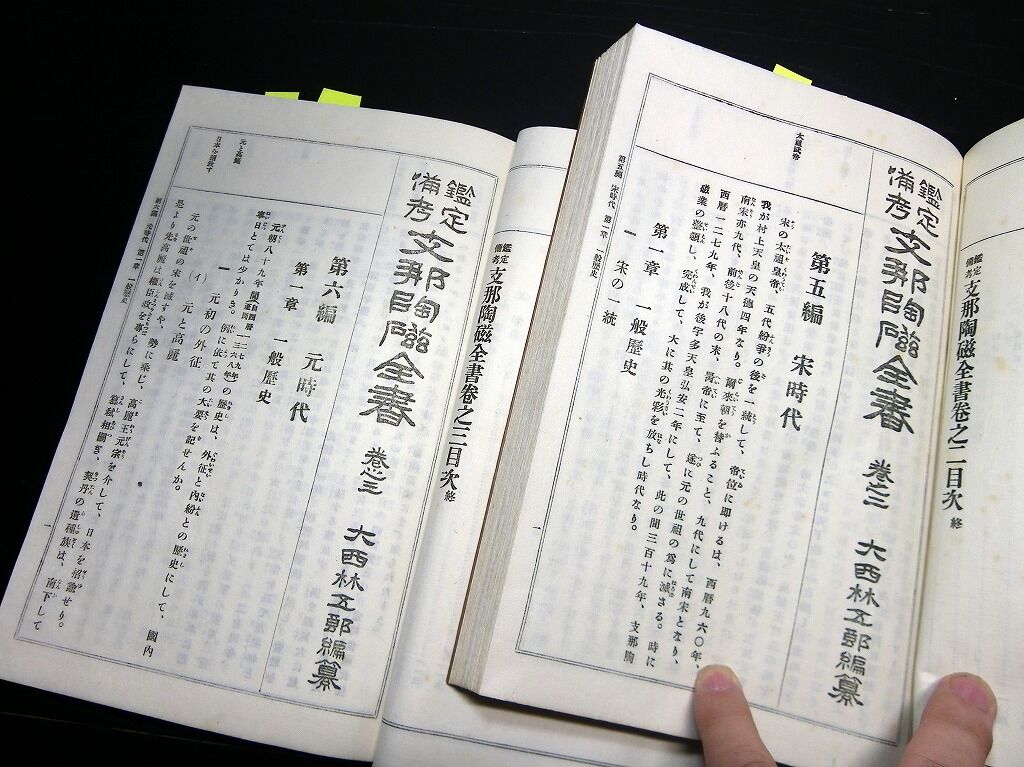 鑑定備考支那陶磁全書卷之二目次終
鑑定
備考
支那陶磁全書 卷之二 大西林五郎編纂
第五編 宋時代
宋の太祖皇帝、五代紛爭の後を一統して、帝位に即けるは、西曆九六〇年、
我が村上天皇の天德四年なり。爾來朝を替ふること、九代にして南宋となり、
南宋亦九代、前後十八代の末、昺帝に至て、遂に元の世祖の爲に滅さる。時に
西曆一二七九年、我が後宇多天皇弘安二年にして、此の間三百十九年、支那陶
磁業の整頓し、完成して、大に其の光彩を放ちし時代なり。
第一章 一般歷史
一 宋の一統
第五編 宋時代 第一章 一般歷史
一
鑑定備考支那陶磁全書卷之三目次終
鑑定
備考
支那陶磁全書 卷之三 大西林五郎編纂
第六編 元時代
第一章 一般歷史
元朝八十九年間(自西曆一二七九年至同一三六八年)の歷史は、外征と內紛との歷史にして、國內
寧日とては少かりき。例に依て其の大要を記せんか。
一 元初の外征
(イ) 元と高麗
元の世祖の宋を滅すや、勢に乘じ、高麗王元宗を介して、日本を招諭せり。
是より先高麗は權臣政を專らにして、簒弑相繼ぎ、契丹の遺種族は、南下して
元と高麗
日本を招致す
第六編 元時代 第一章 一般歷史
一